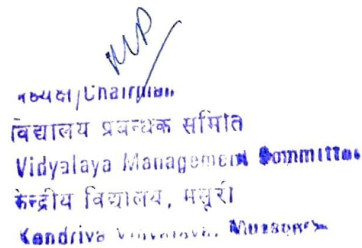 अध्यक्ष/Chairman
विद्यालय प्रबन्धक समिति
Vidyalaya Management Committee
केन्द्रीय विद्यालय, मसूरी
Kendriya Vidyalaya, Mussoorie